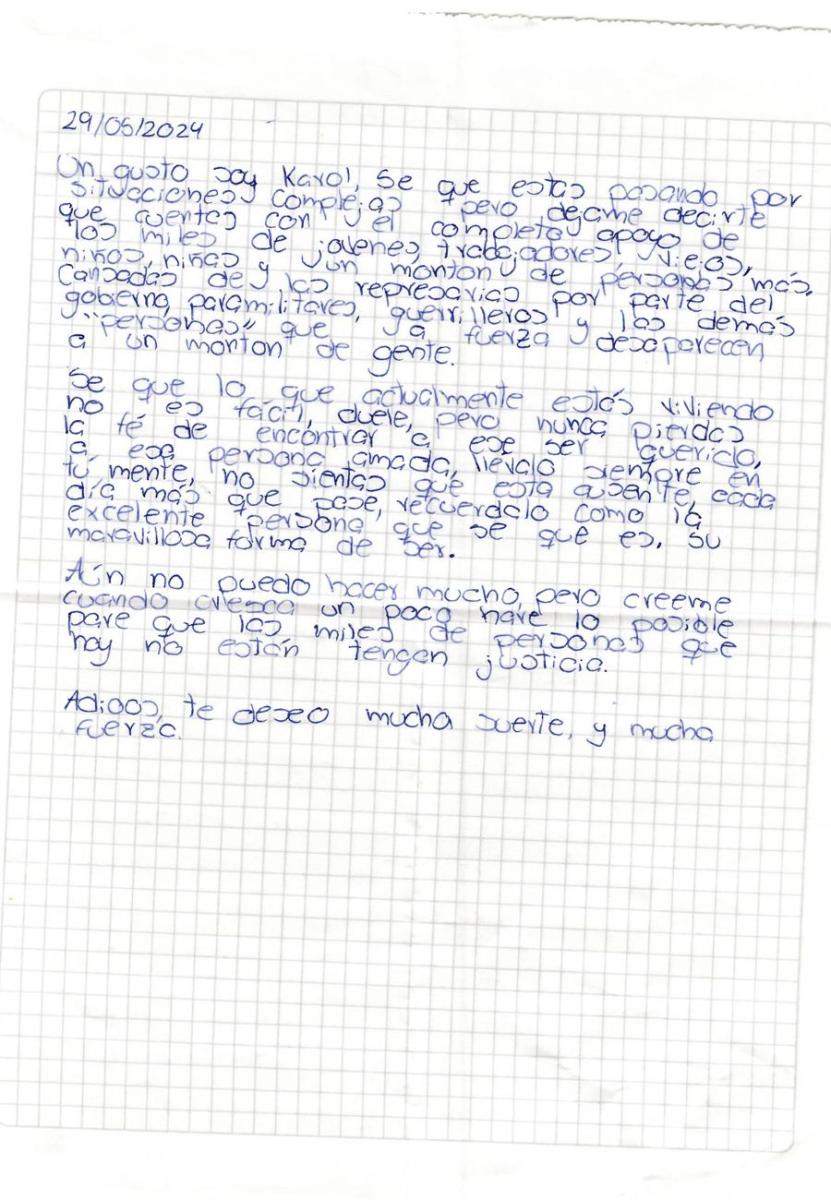 29/05/2024
Un gusto soy Karol, Se que estas pasando por
situaciones complejas pero dejame decirte
que cuentas con el completo apoyo de
los miles de jovenes, trabajadores, viejos,
niños, niñas y un monton de personas más.
Cansadas de las represarias por parte del
gobierno, paramilitares, guerrilleros y las demás
"personas" que a fuerza desaparecen
a un monton de gente.
Se que lo que actualmente estás viviendo
no es fácil, duele, pero nunca pierdas
la fé de encontrar a ese ser querido,
a esa persona amada, llevalo siempre en
tú mente, no sientas que esta ausente, cada
día más que pase, recuerdalo como la
excelente persona que se que es, su
maravillosa forma de ser.
Aún no puedo hacer mucho, pero creeme
cuando cresca un poco hare lo posible
pare que las miles de personas que
hoy no están tengan justicia.
Adioos, te deseo mucha suerte, y mucha
fuerza.